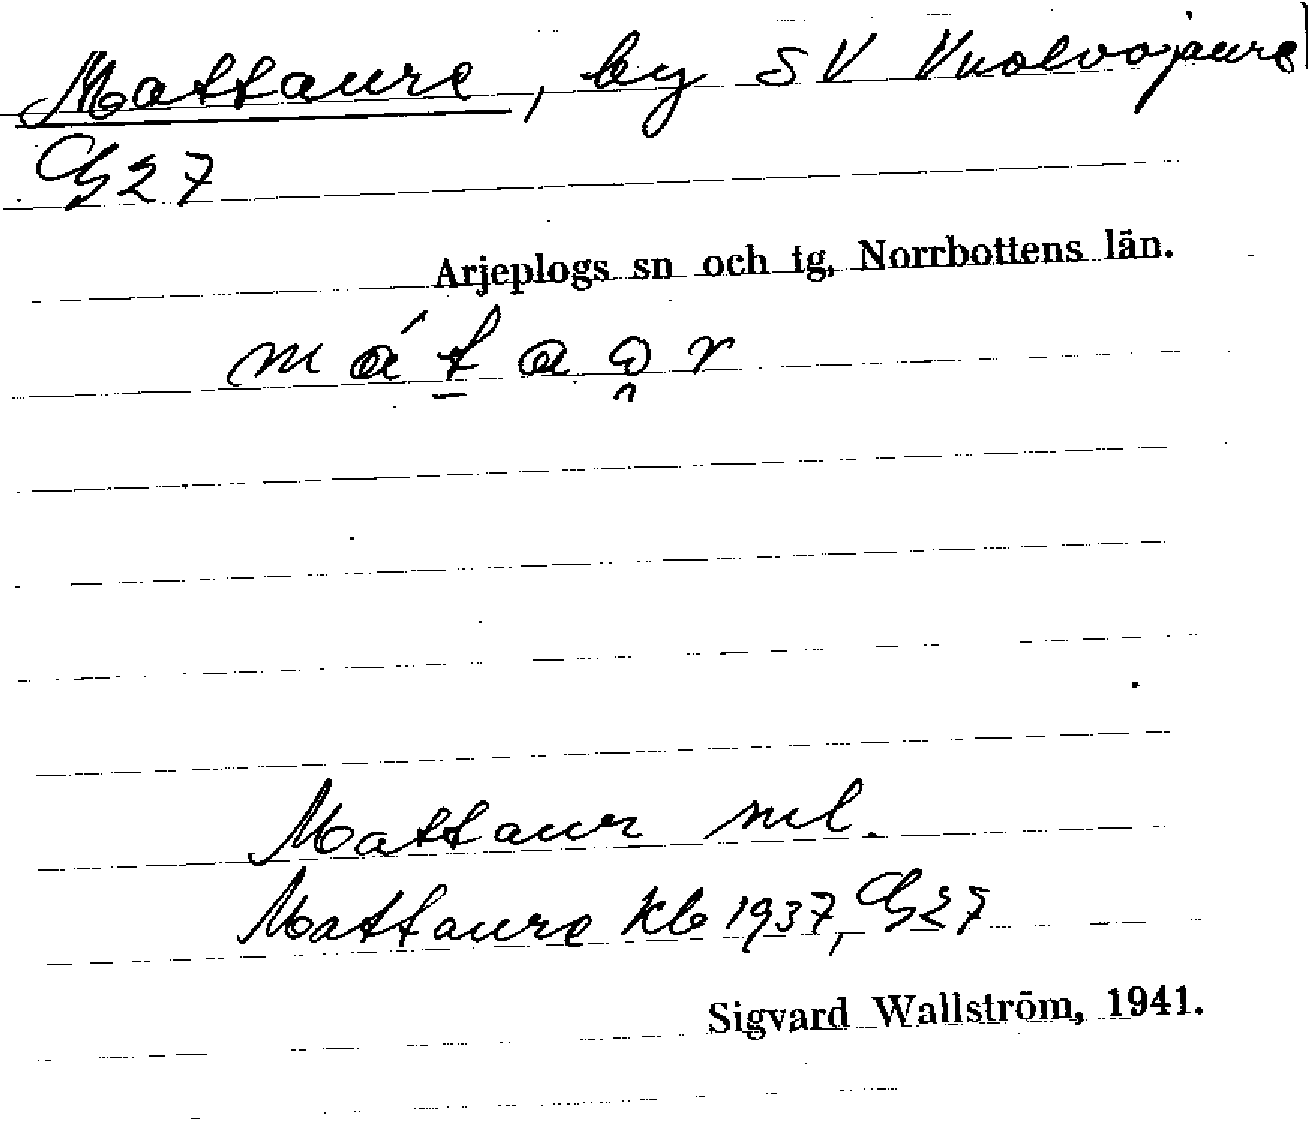 Mattaure, by SV Vuolvojaure
G27
Arjeplogs sn och tg, Norrbottens län.
má̱t̠ao̯r
Mattaur ml.
Mattaure Kb 1937, G27
Sigvard Wallström, 1941.